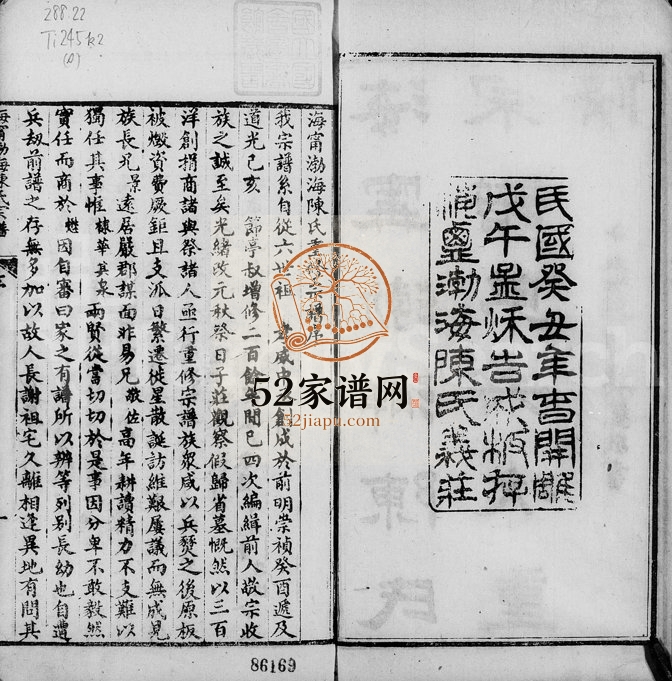 民國癸丑年春開雕
戊午孟秋告成板存
渤海陳氏義莊
288.22
Ti245k2
(0)
海甯渤海陳氏重修宗譜序
我宗譜系自從六世祖 創成於前明崇禎癸酉遞及
道光己亥 節亭叔增修二百餘年間已四次編緝前人敬宗收
族之誠至矣光緒改元秋祭日子莊觀察假歸省墓慨然以三百
洋創捐商諸與祭諸人亟行重修宗譜族眾咸以兵燹之後原板
被燬資費厥鉅且支派日繁遷徙星散誕訪維艱屢議而無成見
族長兄景遠居嚴郡謀面非易兄敬佐高年耕讀精力不支難以
獨任其事惟槺華其泉兩賢從當切切於是事因分卑不敢毅然
實任而商於甡因自審曰家之有譜所以辨等列別長幼也自遭
兵劫前譜之存無多加以故人長謝祖宅久離相逢異地有問其
海甯渤海陳氏宗譜
52家谱网
52jiapu.com
86169